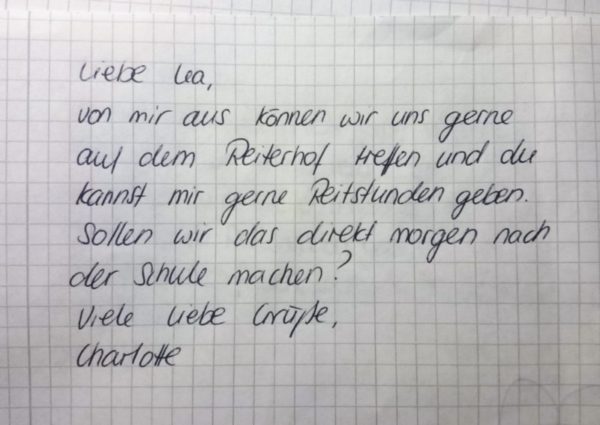 Liebe Lea,
von mir aus können wir uns gerne
auf dem Reiterhof treffen und du
kannst mir gerne Reitstunden geben.
Sollen wir das direkt morgen nach
der Schule machen?
Viele liebe Grüße,
Charlotte